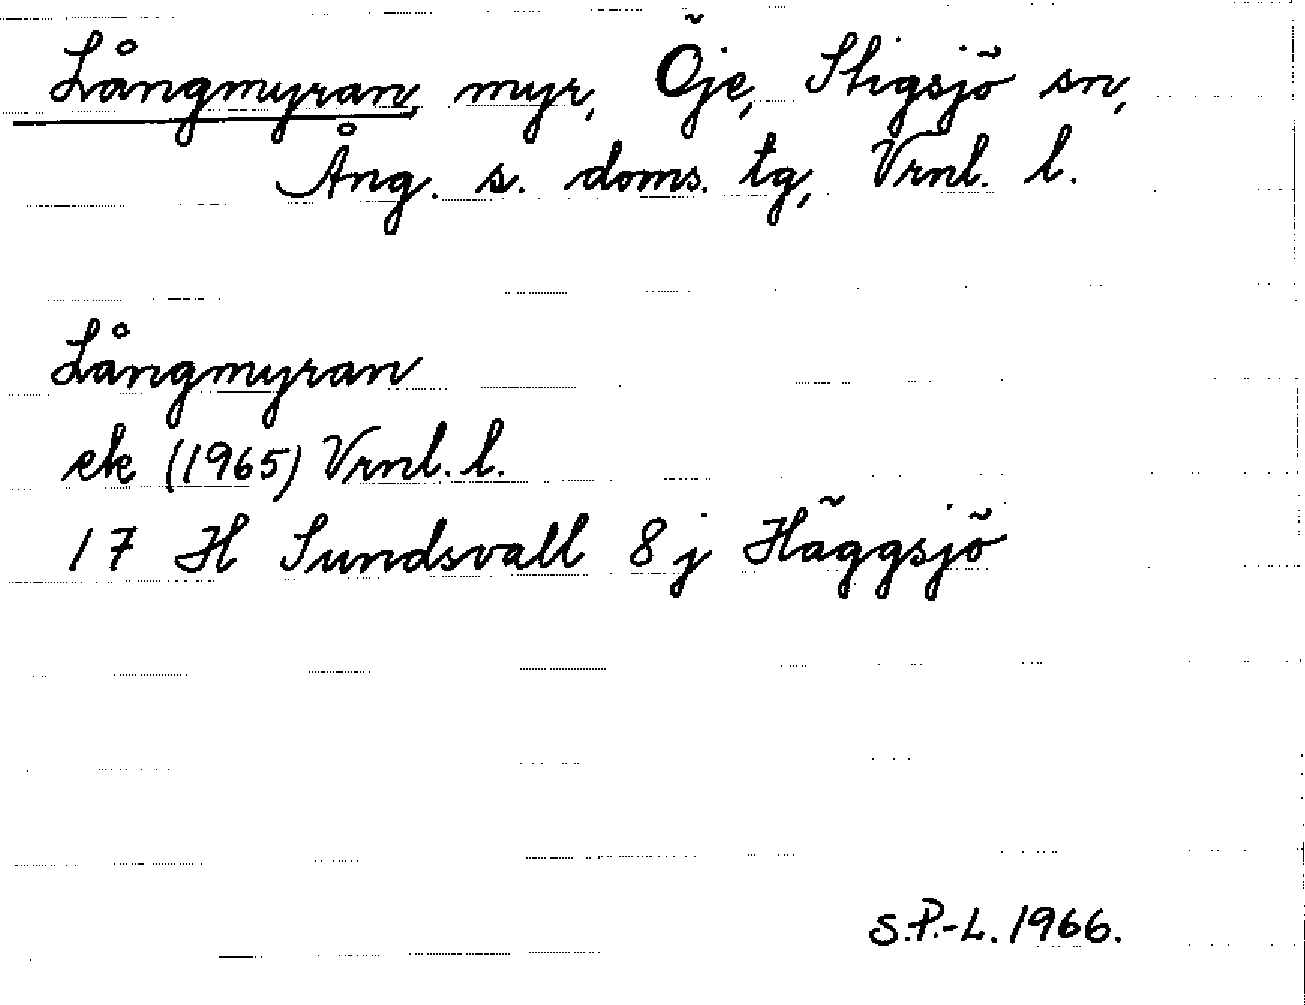 Långmyran, myr, Öje, Stigsjö sn,
Ång. s. doms. tg, Vrnl. l.
Långmyran
ek (1965) Vrnl. l.
17 H Sundsvall 8 j Häggsjö
S.P.-L. 1966.